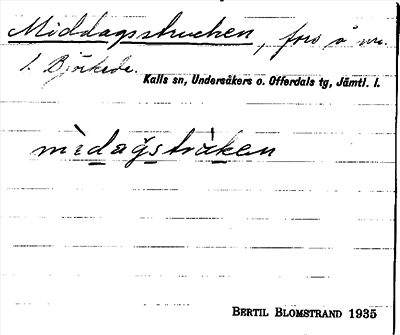 Middagsstruken, fors å nr.
1. Björkede.
Kalls sn, Undersåkers o. Offerdals tg, Jämtl. l.
mìdağstràken
BERTIL BLOMSTRAND 1935